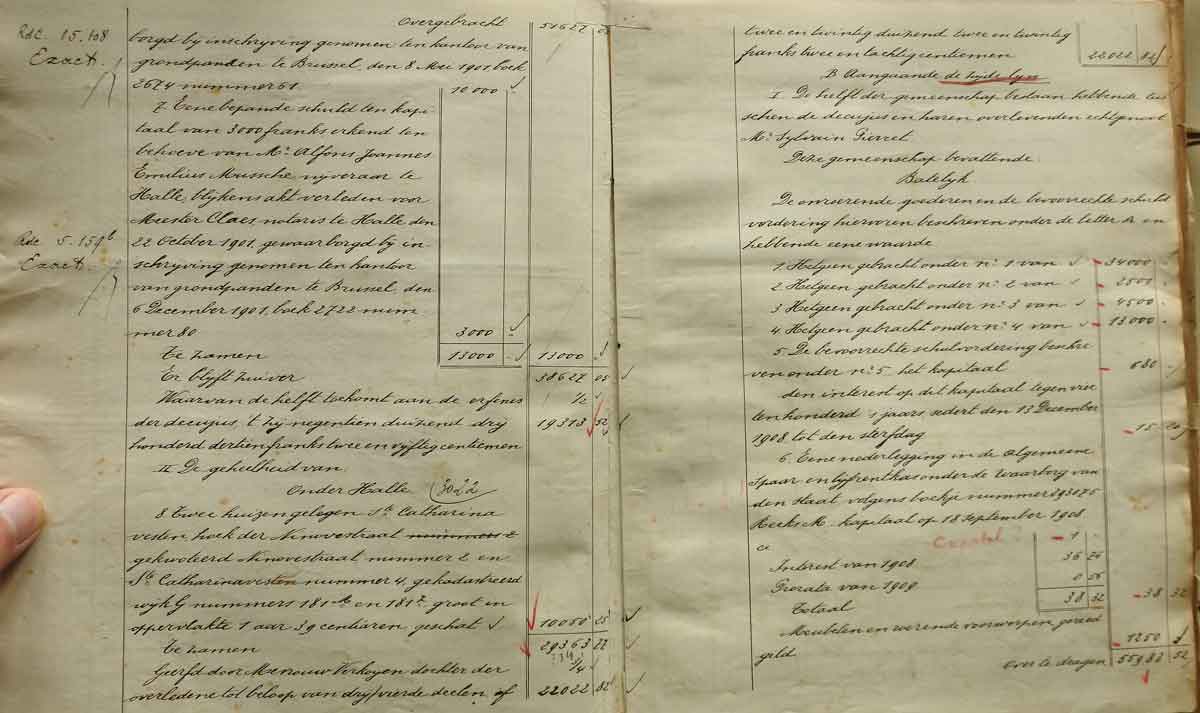 Overgebracht 51627 05
Rdc. 15.108
Exact.
borgd bij inschryving genomen ten kantoor van
grondpanden te Brussel, den 8 Mei 1901, boek
2674 nummer 61. 10000
7. Eene bepande schuld ten kapi-
taal van 3000 franks erkend ten
behoeve van Mr Alfons Joannes
Emilius Mussche nyveraar te
Halle, blykens akt verleden voor
Meester Claes, notaris te Halle den
Rdc. 5.159
Exact.
22 October 1901, gewaarborgd by in-
schryving genomen ten kantoor
van grondpanden te Brussel, den
6 December 1901, boek 2722 num-
mer 80 3000
Te zamen 13000 13000
Er blyft zuiver 38627 05
Waarvan de helft toekomt aan de erfenis 1/2
der decujus, 't zij negentien duizend dry 19313 52
honderd dertien franks twee en vyftig centiemen
II De geheelheid van
Onder Halle 3022
8. Twee huizen gelegen St Catharina
vesten, hoek der Ninovestraat
gekwoteerd Ninovestraat nummer 2 en
Ste Catharinavesten nummer 4, gekadastreerd
wijk G nummers en groot in
oppervlakte 1 aar 39 centiaren geschat
Te zamen 29363 77
Geërfd door Mevrouw Verhoyen dochter der 3/4
overledene tot beloop van dry/vierde deelen, of 22022 82
twee en twintig duizend twee en twintig
franks twee en tachtig centiemen 22022 82
B Aangaande de zijdelyn
I. De helft der gemeenschap bestaan hebbende tus-
schen de decujus en haren overlevenden echtgenoot
Mr Sylvain Pierret.
Deze gemeenschap bevattende.
Batelyk
De onroerende goederen en de bevoorrechte schuld
vordering hiervoren beschreven onder de letter A en
hebbende eene waarde
1. Hetgeen gebracht onder no 1 van 34000
2 Hetgeen gebracht onder no 2 van 2500
3 Hetgeen gebracht onder no 3 van 4500
4. Hetgeen gebracht onder no 4 van 13000
5. De bevoorrechte schulvordering beschre
ven onder no 5 het kapitaal 680
den interest op dit kapitaal tegen vier
ten honderd 's jaars sedert den 13 December
1908 tot den sterfdag 15 20
6. Eene nederlegging in de Algemeene
Spaar en lyfrentkas onder de waarborg van
den Staat volgens boekje nummer
Reeks M. kapitaal op 18 September 1908
1
Interest van 1908 36 76
Prorata van 1909 0 56
Totaal 38 32 38 32
Meubelen en roerende voorwerpen goed
geld 1250
Over te dragen 55983 52